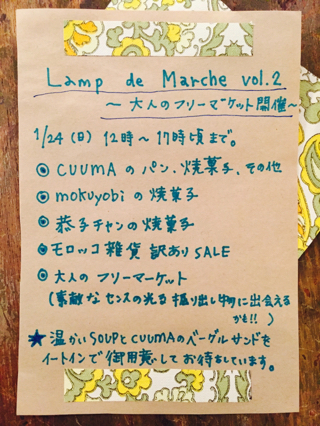 Lamp de Marche vol.2
～大人のフリーマーケット開催～
1/24(日) 12時～17時頃まで。
◎CUUMAのパン、焼菓子、その他
◎mokuyobiの焼菓子
◎恭子チャンの焼菓子
◎モロッコ雑貨 訳ありSALE
◎大人のフリーマーケット
(素敵なセンスの光る掘り出し物に出会える
かも!! )
★温かいSOUPとCUUMAのベーグルサンドを
イートインで御用意してお待ちしています。